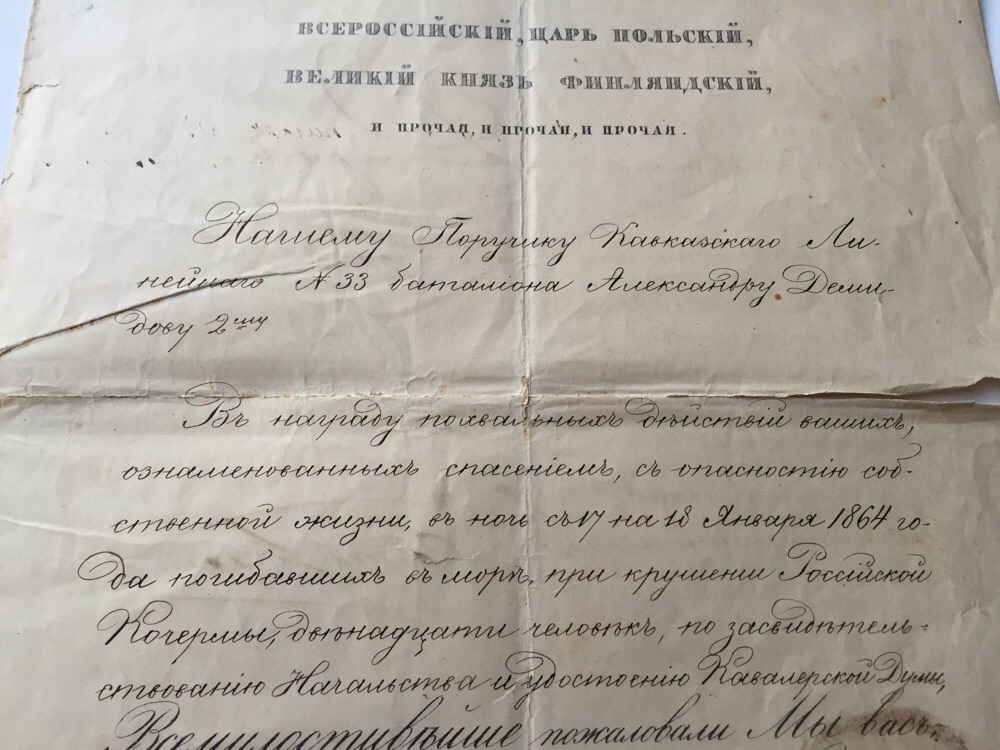 ВСЕРОССІЙСКІЙ, ЦАРЬ ПОЛЬСКІЙ,
ВЕЛИКІЙ КНЯЗЬ ФИНЛЯНДСКІЙ,
И ПРОЧАЯ, И ПРОЧАЯ, И ПРОЧАЯ.
Нашему Поручику Кавказскаго Ли-
нейнаго № 33 баталіона Александру Деми-
дову 2му
Въ награду похвальныхъ дѣйствій вашихъ,
ознаменованныхъ спасеніемъ, съ опасностію соб-
ственной жизни, въ ночь съ 17 на 18 Января 1864 го-
да погибавшихъ въ морѣ, при крушеніи Россійской
Кочермы, двѣнадцати человѣкъ, по засвидѣтель-
ствованію Начальства и удостоенію Кавалерской Думы,
Всемилостивѣйше пожаловали Мы васъ